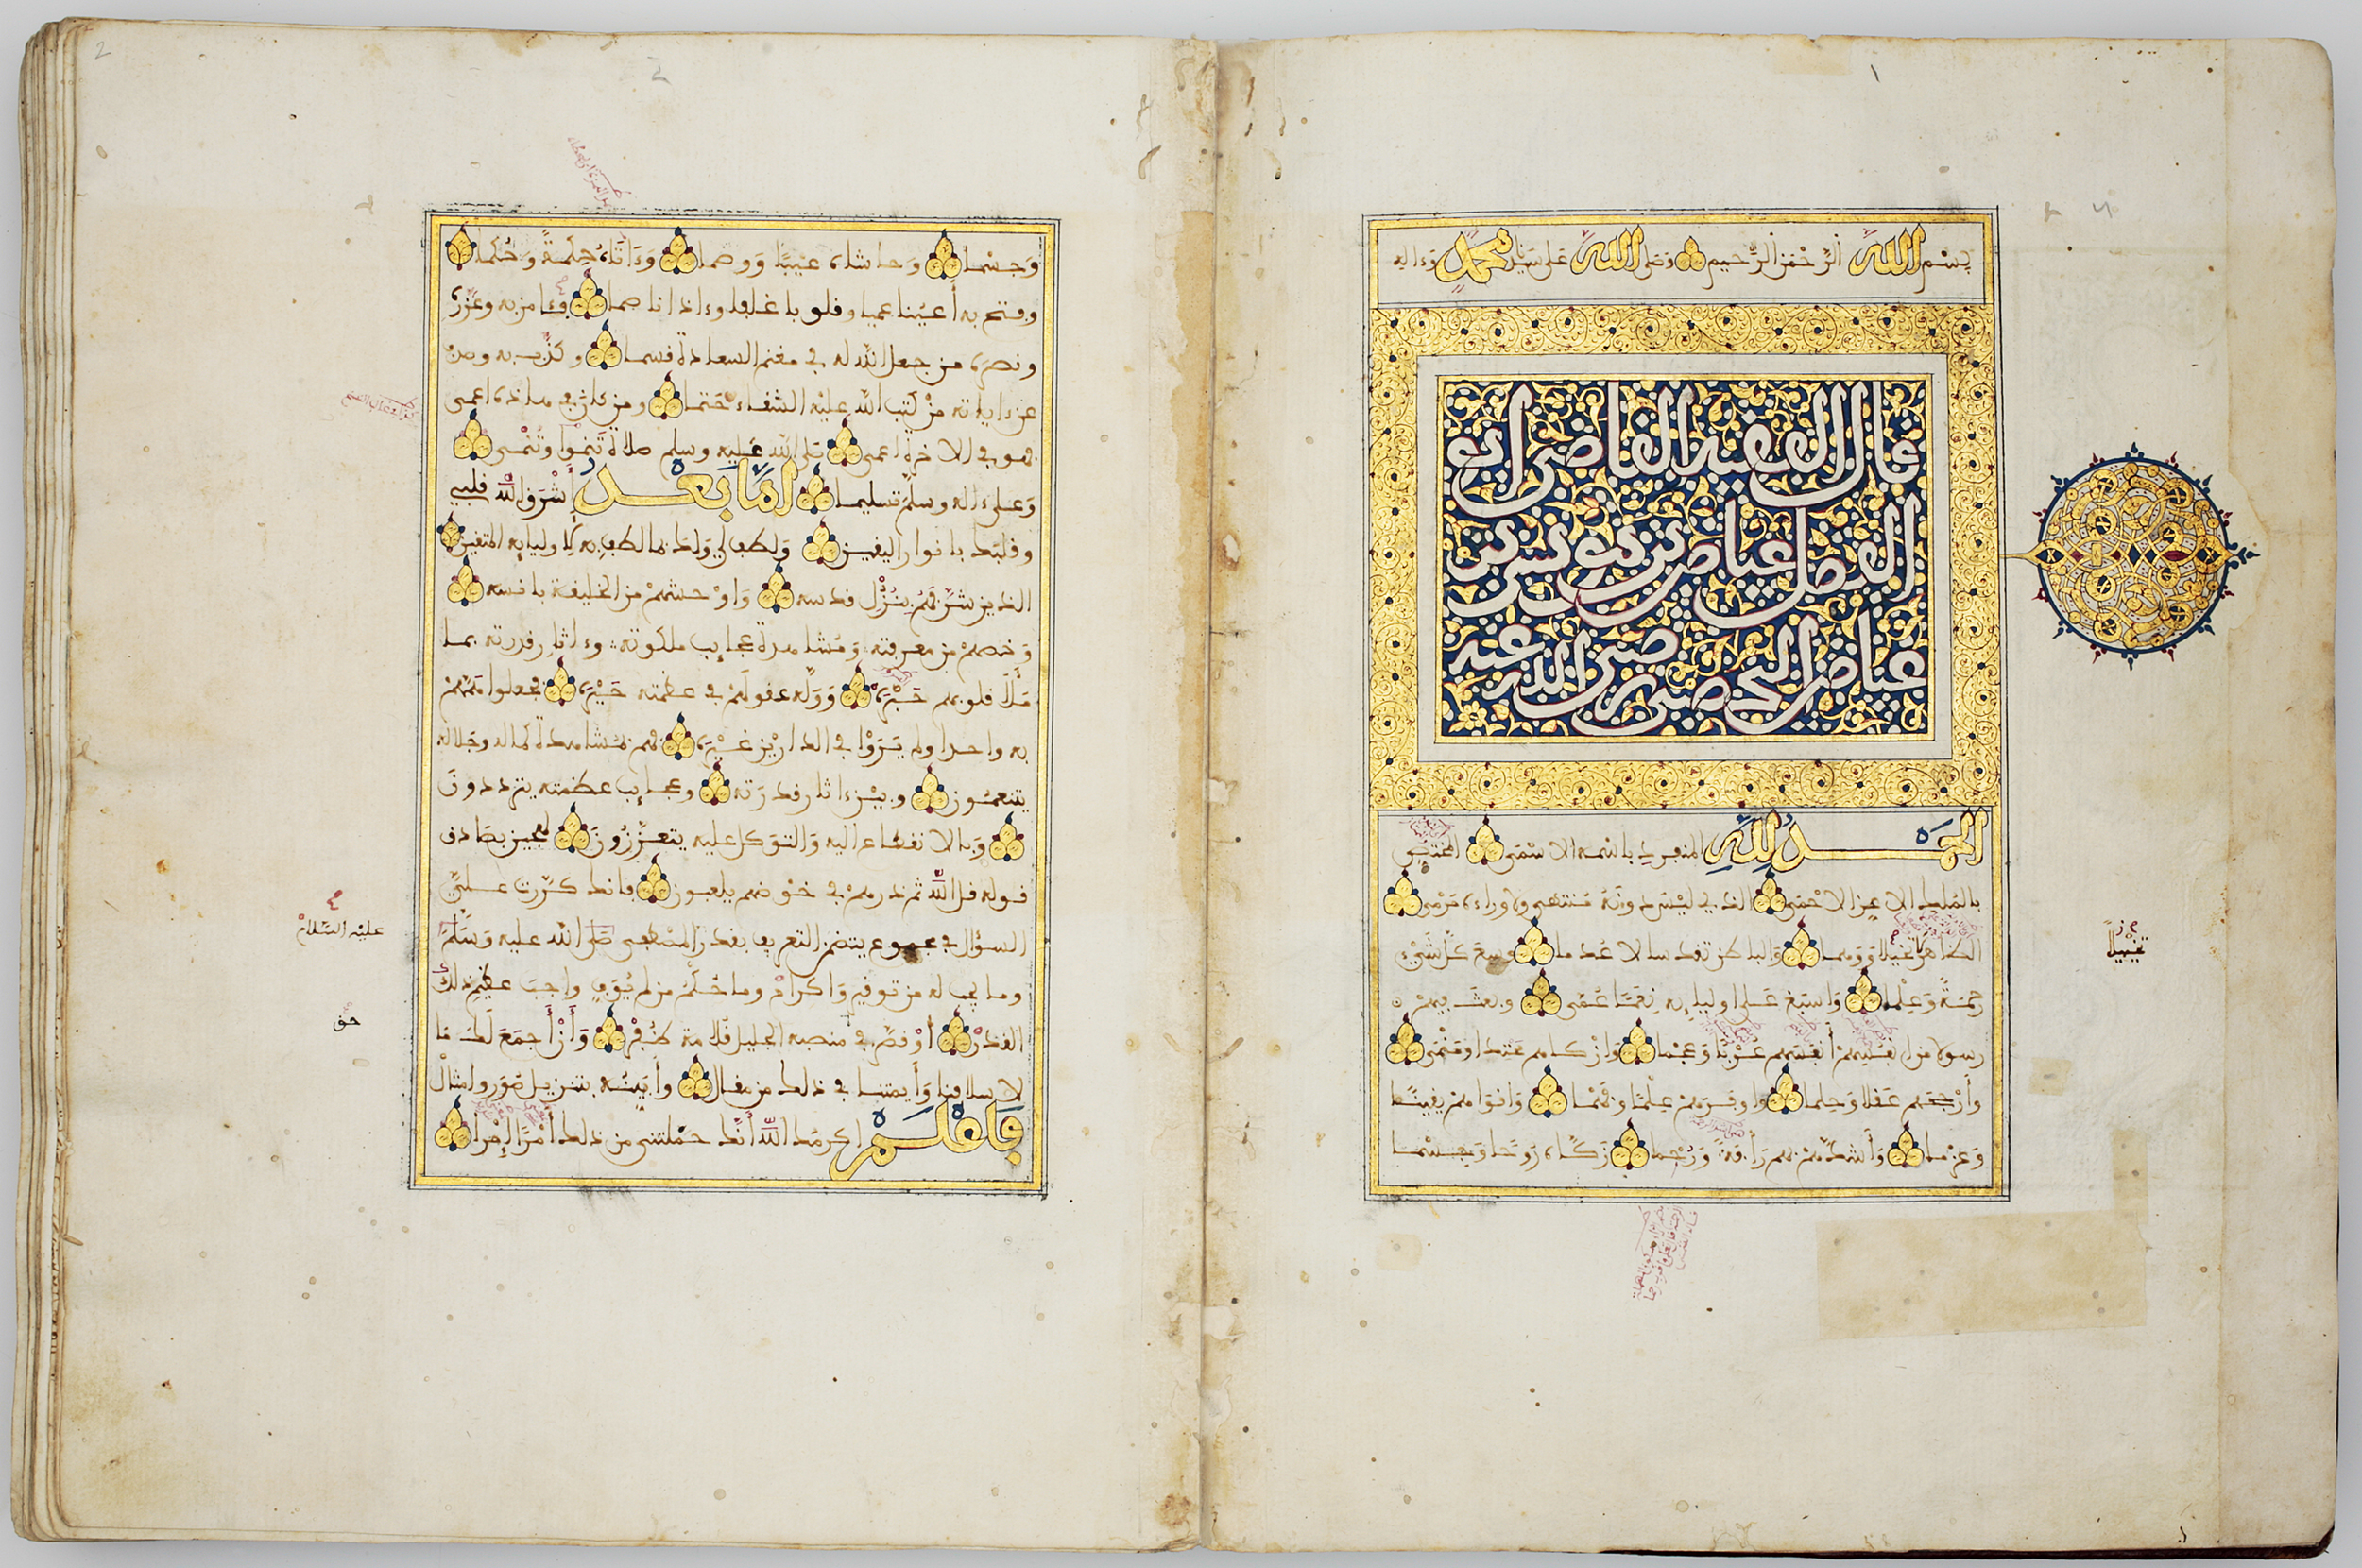 بسم الله الرحمن الرحيم وصلى الله على سيدنا محمد وءاله
قال الفقيه القاضي ابو
الفضل عياض بن موسى بن
عياض اليحصبي رضي الله عنه
الحمد لله المنفرد باسمه الاسمى المختص
بالملك الاعز الاحمى الذي ليس دونه منتهى ولا وراءه مرمى
الظاهر لا تخيلا ووهما والباطن تقدسا لا عدما وسع كل شيء
رحمة وعلما واسبغ على اوليايه نعما عمى وبعث فيهم
رسولا من انفسهم أنفسهم عربا وعجما وازكاهم محتدا ومنمى
وأرجحهم عقلا وحلما واوفرهم علما وفهما واقواهم يقينا
وعزما وأشدهم بهم رأفة ورحما زكاه روحا وجسما
تخييلا
وجسما وحاشاه عيبا ووصما وءاتاه حكمة وحكما
وفتح به أعينا عميا وقلوبا غلفا وءاذانا صما فءامن به وعزره
ونصره من جعل الله له في مغنم السعادة قسما وكذب به وصدف
عن ءاياته من كتب الله عليه الشقاء حتما ومن كان في هذه اعمى
فهو في الاخرة اعمى صلى الله عليه وسلم صلاة تنموا وتنمى
وعلى ءاله وسلم تسليما اما بعد أشرق الله قلبي
وقلبك بانوار اليقين ولطف لي ولك بما لطف به لأوليايه المتقين
الذين شرفهم بنزل قدسه واوحشهم من الخليقة بانسه
وخصهم من معرفته ومشاهدة عجايب ملكوته وءاثار قدرته بما
ملأ قلوبهم حبره ووله عقولهم في عظمته حيره فجعلوا همهم
به واحدا ولم يروا في الدارين غيره فهم بمشاهدة كماله وجلاله
يتنعمون وبين ءاثار قدرته وعجايب عظمته يترددون
وبالانقطاع اليه والتوكل عليه يتعززون لهجين بصادق
قوله قل الله ثم ذرهم في خوضهم يلعبون فانك كررت علي
السؤال في مجموع يتضمن التعريف بقدر المصطفى صلى الله عليه وسلم
وما يجب له من توقير واكرام وما حكم من لم يوف واجب عظيم ذلك
القدر أو قصر في منصبه الجليل قلامة ظفر وأن أجمع لك ما
لاسلافنا وأيمتنا في ذلك من مقال وأبينه بتنزيل صور وامثال
فاعلم اكرمك الله أنك حملتني من ذلك أمرا إمرا
عليه السلام
حق